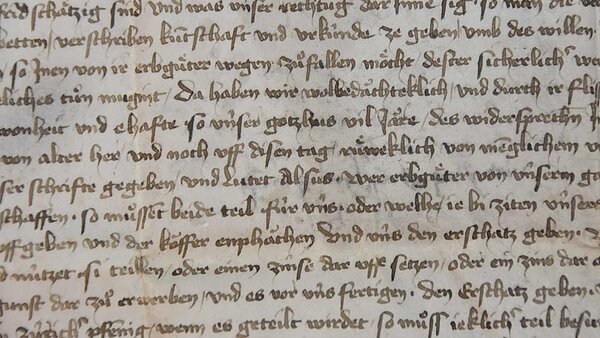 schätzig sind vnd was vnser rechtũg dar Inne sig · so man die
betten / verschriben kũtschaft vnd vrkúnde ze geben / vmb des willen ·
so Inen von ir erbgüter wegen zůfallen möcht dester sicherlich'
liches tůn mugint · Da haben wir wolbedächteklich / vnd durch ir
wonheit vnd ehafte · so vnser gotzhus vil Jare · des widersprechñ
von alter her / vnd noch vff disen tag / růweklich von menglichem
ser schrifte gegeben / vnd lutet Alsus · Wer erbgüter von vnserm
schaffen · so müssēt beide teil · für vns · oder welhe / ie bi ziten vnsers
vffgeben vnd der köffer enphachen Vnd vns den erschatz geben ·
nützet · si teillen / oder einen zinse dar vff setzen / oder ein zins dar
gunst dar zů erwerben / vnd es vor vns fertigen · den Erschatz geben ·
zúrich' pfenig / wenn es geteilt wirdet · so můss ieklich' teil